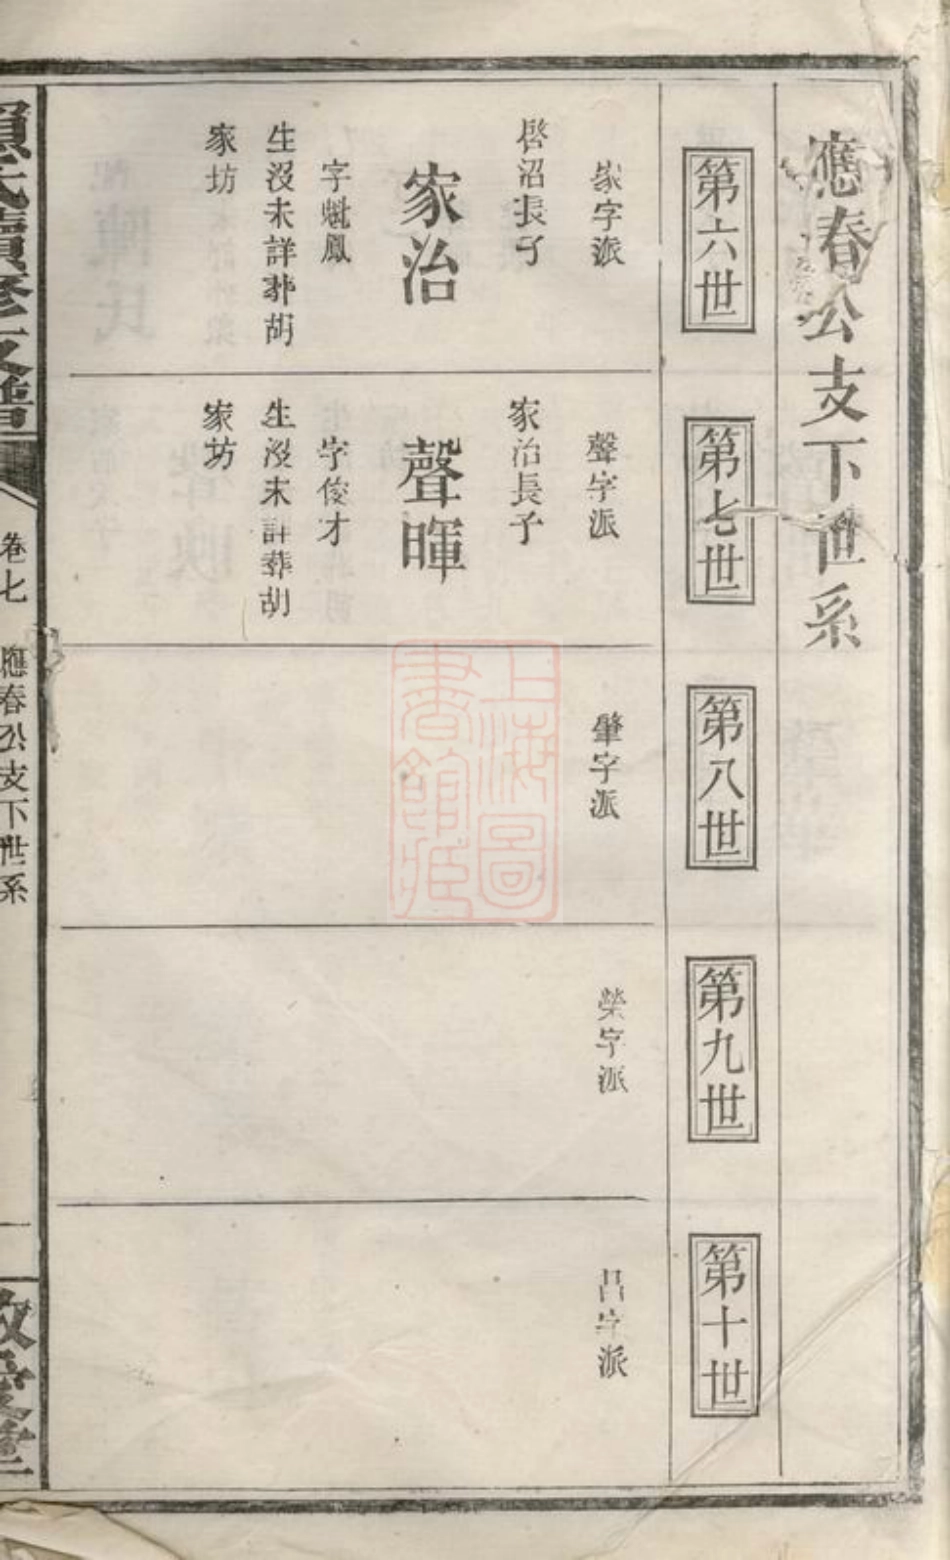 應春公支下世系
第六世
家字派
啓沼長子
家治
字魁鳳
生沒未詳葬胡
家坊
第七世
聲字派
家治長子
聲暉
字俊才
生沒未詳葬胡
家坊
第八世
肇字派
第九世
榮字派
第十世
昌字派
上海圖
書館藏
氏續修支譜
卷七
應春公支下世系
一
敦愛堂